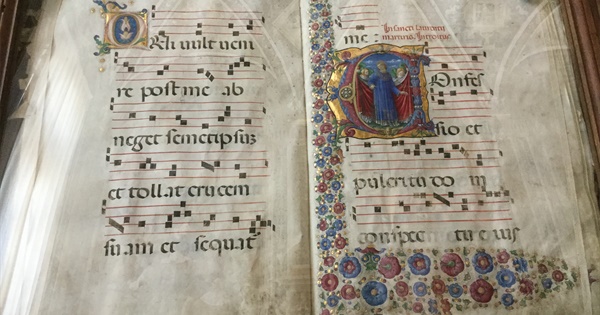 QUi vult veni
re post me ab
neget semetipsuz
et tollat crucem
suam et sequat
me :
In sancti laurentii
martiris Introitus
COnfes
sio et
pulcritudo in
conspectu eius